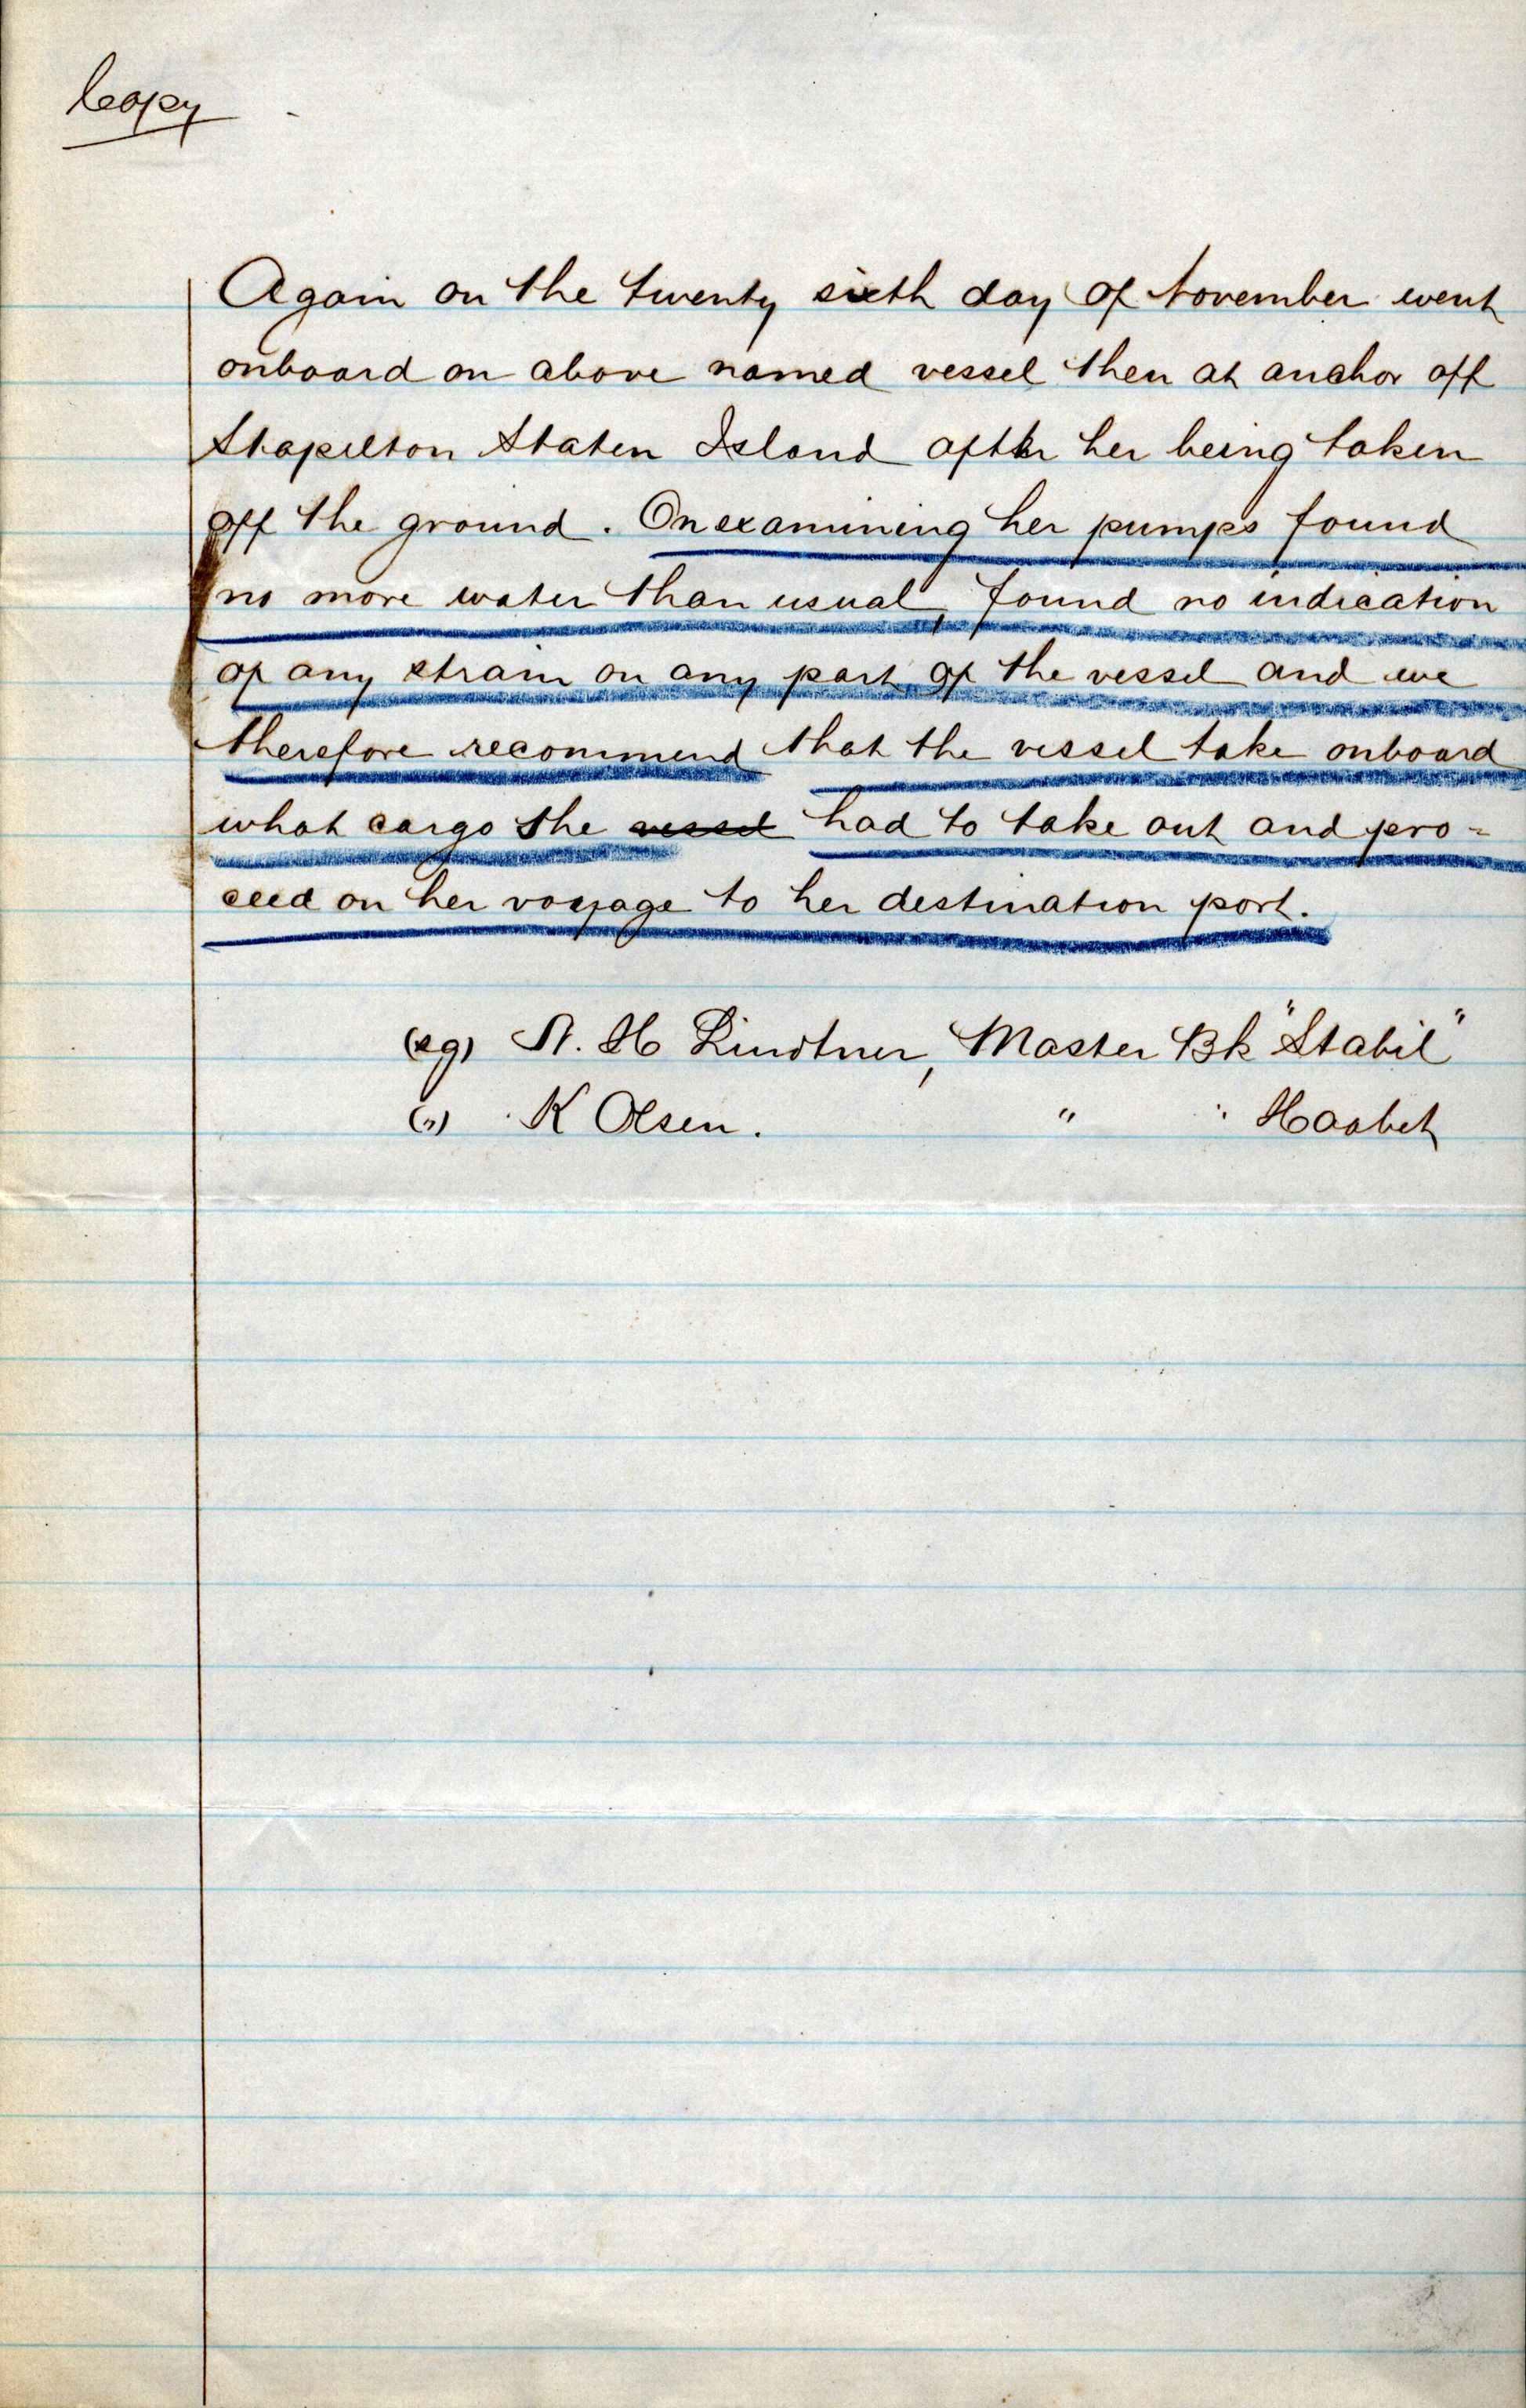 Copy
Again on the twenty sixth day of November went
onboard on above named vessel then at anchor off
Stapelton Staten Island after her being taken
off the ground. On examining her pumps found
no more water than usual, found no indication
of any strain on any part of the vessel and we
therefore recommend that the vessel take onboard
what cargo the vessel had to take out and pro=
ceed on her voyage to her destination port.
(sg) N. H Lindtner, Master Bk "Stabil"
(") K Olsen. " " Haabet